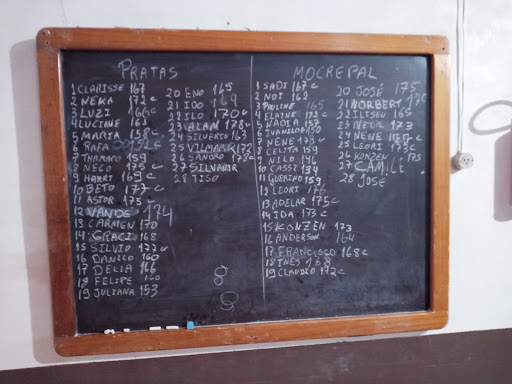 PRATAS
1 CLARISSE 167
2 NEKA 172 C
3 LUZI 166 C
4 LUCIANE 161
5 MARIA 158 C
6 RAFA
7 THAMANO 159
8 NECO 175 C
9 HARRI 169 C
10 BETO 177 C
11 ASTOR 175 C
12 VANDE 174
13 CARMEN 170
14 GRACI 168
15 SILVIO 172 C
16 DANILO 160
17 DELIA 166
18 FELIPE 160
19 JULIANA 153
20 ENO 165
21 IDO 169
22 ILO 170 C
23 ALAN 178 C
24 SILVERIO 163
25 VILMAR 172
26 SANDRO 178 C
27 SILVANIR
28 TISO
MOCREPAL
1 SADI 167 C
2 NOI 162
3 PAULINE 165
4 ELAINE 172 C
5 NADIA 157
6 IVANILDE 150
7 NENE 173 C
8 CELITA 159
9 NILO 146
10 CASSI 154
11 GUERINO 159
12 LEORI 176
13 ADELAR 175 C
14 IDA 173 C
15 KONZEN 173
16 ANDERSON 164
17 FRANCISCO 168 C
18 INES 168
19 CLAUDIO 172 C
20 JOSÉ 175
21 NORBERT
22 ILISEU 165
23 NEURI 173
24 NENE 175 C
25 LEORI 173 C
26 KONZEN 175
27 CAMILE
28 JOSÉ